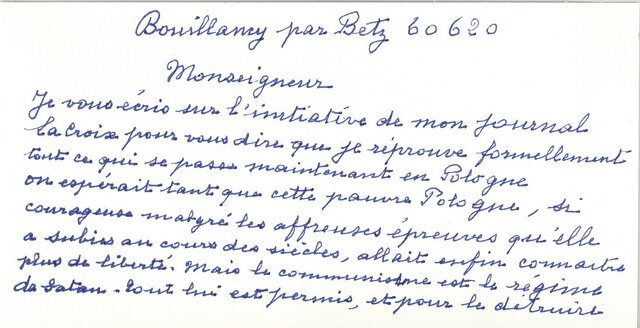 Bouillancy par Betz 60620
Monseigneur
Je vous écris sur l'initiative de mon journal
La Croix pour vous dire que je réprouve formellement
tout ce qui se passe maintenant en Pologne
on espérait tant que cette pauvre Pologne, si
courageuse malgré les affreuses épreuves qu'elle
a subies au cours des siècles, allait enfin connaitre
plus de liberté. Mais le communisme est le régime
de Satan. Tout lui est permis, et pour le détruire